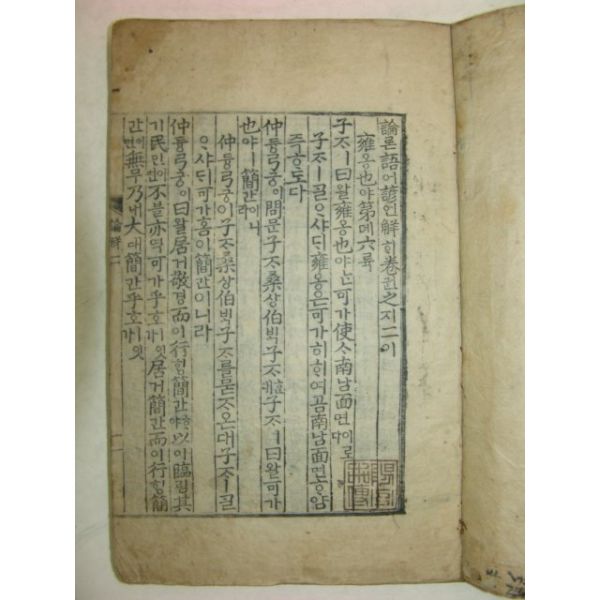 論론語어諺언解ᄒᆡ卷권之지二이
雍옹也야第뎨六륙
子ᄌᆞㅣ曰왈雍옹也야ᄂᆞᆫ可가使ᄉᆞ南남面면이로다
子ᄌᆞㅣᄀᆞᆯᄋᆞ샤ᄃᆡ雍옹은可가히ᄒᆞ여곰南남面면ᄒᆞ얌
즉ᄒᆞ도다
仲듕弓궁이問문子ᄌᆞ桑상伯ᄇᆡᆨ子ᄌᆞᄒᆞᆫ대子ᄌᆞㅣ曰왈可가
也야ㅣ簡간이니라
仲듕弓궁이子ᄌᆞ桑상伯ᄇᆡᆨ子ᄌᆞ를묻ᄌᆞ온대子ᄌᆞㅣᄀᆞᆯ
ᄋᆞ샤ᄃᆡ可가홈이簡간이니라
仲듕弓궁이曰왈居거敬경而이行ᄒᆡᆼ簡간ᄒᆞ야以이臨림其
기民민이면不블亦역可가乎호ㅣ잇가居거簡간而이行ᄒᆡᆼ簡
간이면無무乃내大태簡간乎호ㅣ잇가
論解二